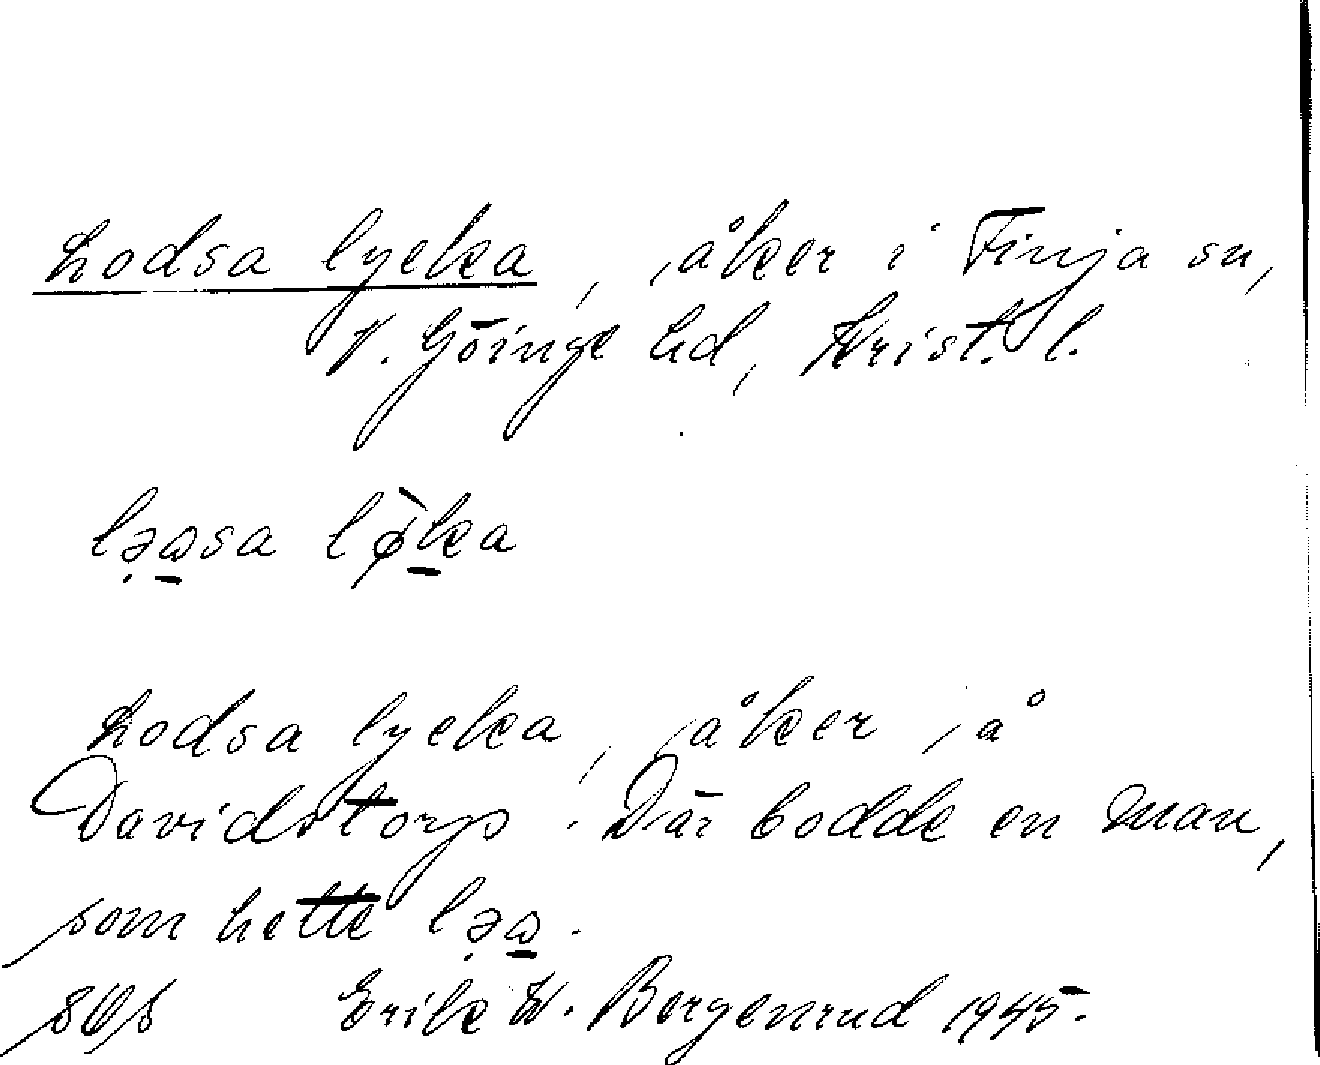 Lodsa lycka, åker i Finja sn,
V. Göinge hd, Krist. l.
lə̣ɷ̲sa lø̀k̲a
Lodsa lycka, åker å
Davidstorp. Där bodde en man,
som hette lə̣ɷ̲.
Erik W. Bergenrud 1945.